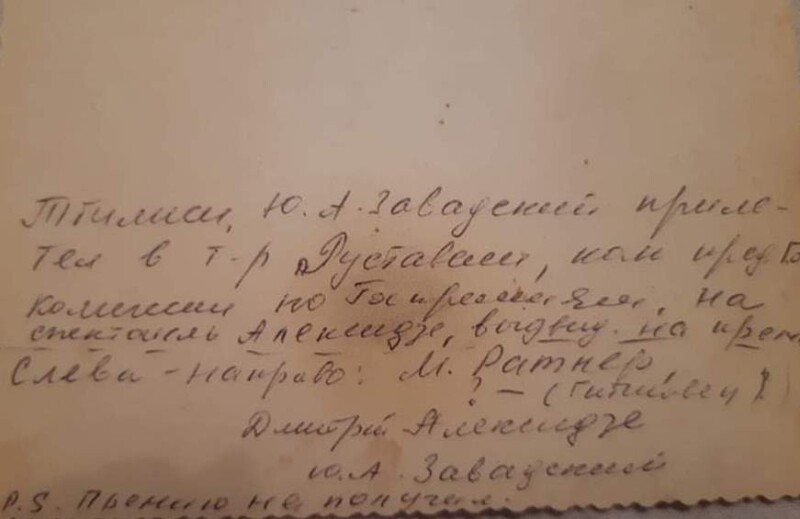 Тбилиси, Ю.А. Завадский приле-
тел в т-р Руставели, как пред. Го
комиссии по Госпремиям, на
спектакль Алексидзе, выдвид. на прем
Слева-направо: М. Ратнер,
? — (Гитисовец)
Дмитрий Алексидзе
Ю.А. Завадский
P.S. Премию не получил.